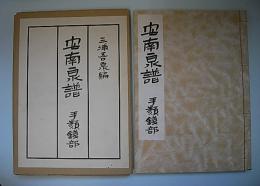 三浦吾泉編
安南泉譜
手類銭部
安南泉譜
手類銭部